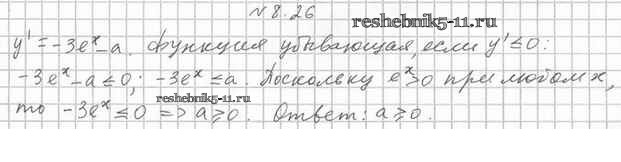 № 8.26
reshebnik5-11.ru
y' = -3eˣ - a. Функция убывающая, если y' ≤ 0:
-3eˣ - a ≤ 0; -3eˣ ≤ a. Поскольку eˣ > 0 при любом x,
reshebnik5-11.ru
то -3eˣ ≤ 0 => a ≥ 0. Ответ: a ≥ 0.